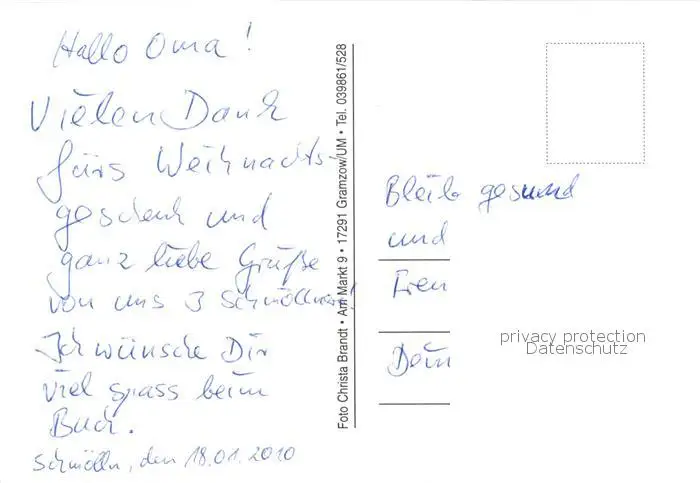 Hallo Oma!
Vielen Dank
fürs Weihnachts-
geschenk und
ganz liebe Grüße
von uns 3 Schmöllnern!
Ich wünsche Dir
viel spass beim
Buch.
Schmölln, den 18.01.2010
Foto Christa Brandt • Am Markt 9 • 17291 Gramzow/UM • Tel. 039861/528
Bleib gesund
und
Freu
Dein
privacy protection
Datenschutz